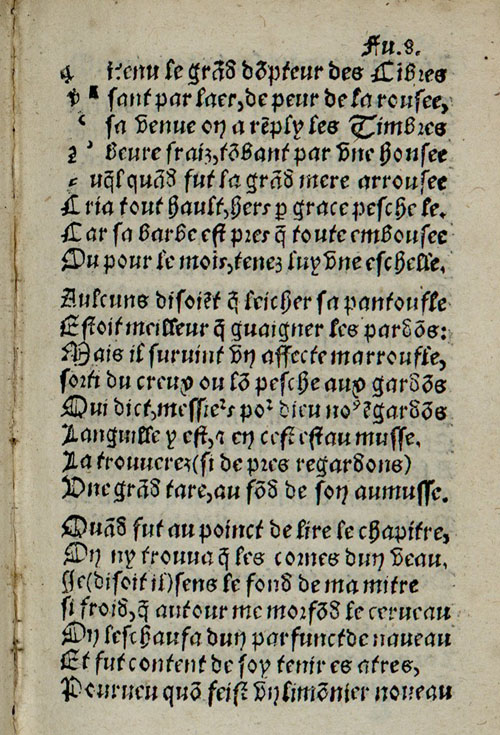 Fu.8.
i?enu le grãd dõpteur des Cibres
v sant par laer, de peur de la rousee,
sa venue on a rẽply les Timbres
beure fraiz, tõbant par vne housee
uq̃l quãd fut la grãd mere arrousee
Cria tout hault, hers p̱ grace pesche le.
Car sa barbe est pres q̃ toute embousee
Ou pour le mois, tenez luy vne eschelle.
Aulcuns disoiẽt q̃ leicher sa pantoufle
Estoit meilleur q̃ guaigner les pardõs:
Mais il suruint vn affecte marroufle,
sorti du creux ou lõ pesche aux gardõs
Qui dict, messieᷣs poᷣ dieu noꝰ ẽgardõs
Languille y est, ⁊ en cest estau musse.
La trouuerez (si de pres regardons)
Vne grãd tare, au fõd de son aumusse.
Quãd fut au poinct de lire le chapitre,
On ny trouua q̃ les cornes dun veau.
Je (disoit il) sens le fond de ma mitre
si froid, q̃ autour me morfõd le cerueau
On leschaufa dun parfunct de naueau
Et fut content de soy tenir es atres,
Pourueu quõ feist vn limõnier noueau